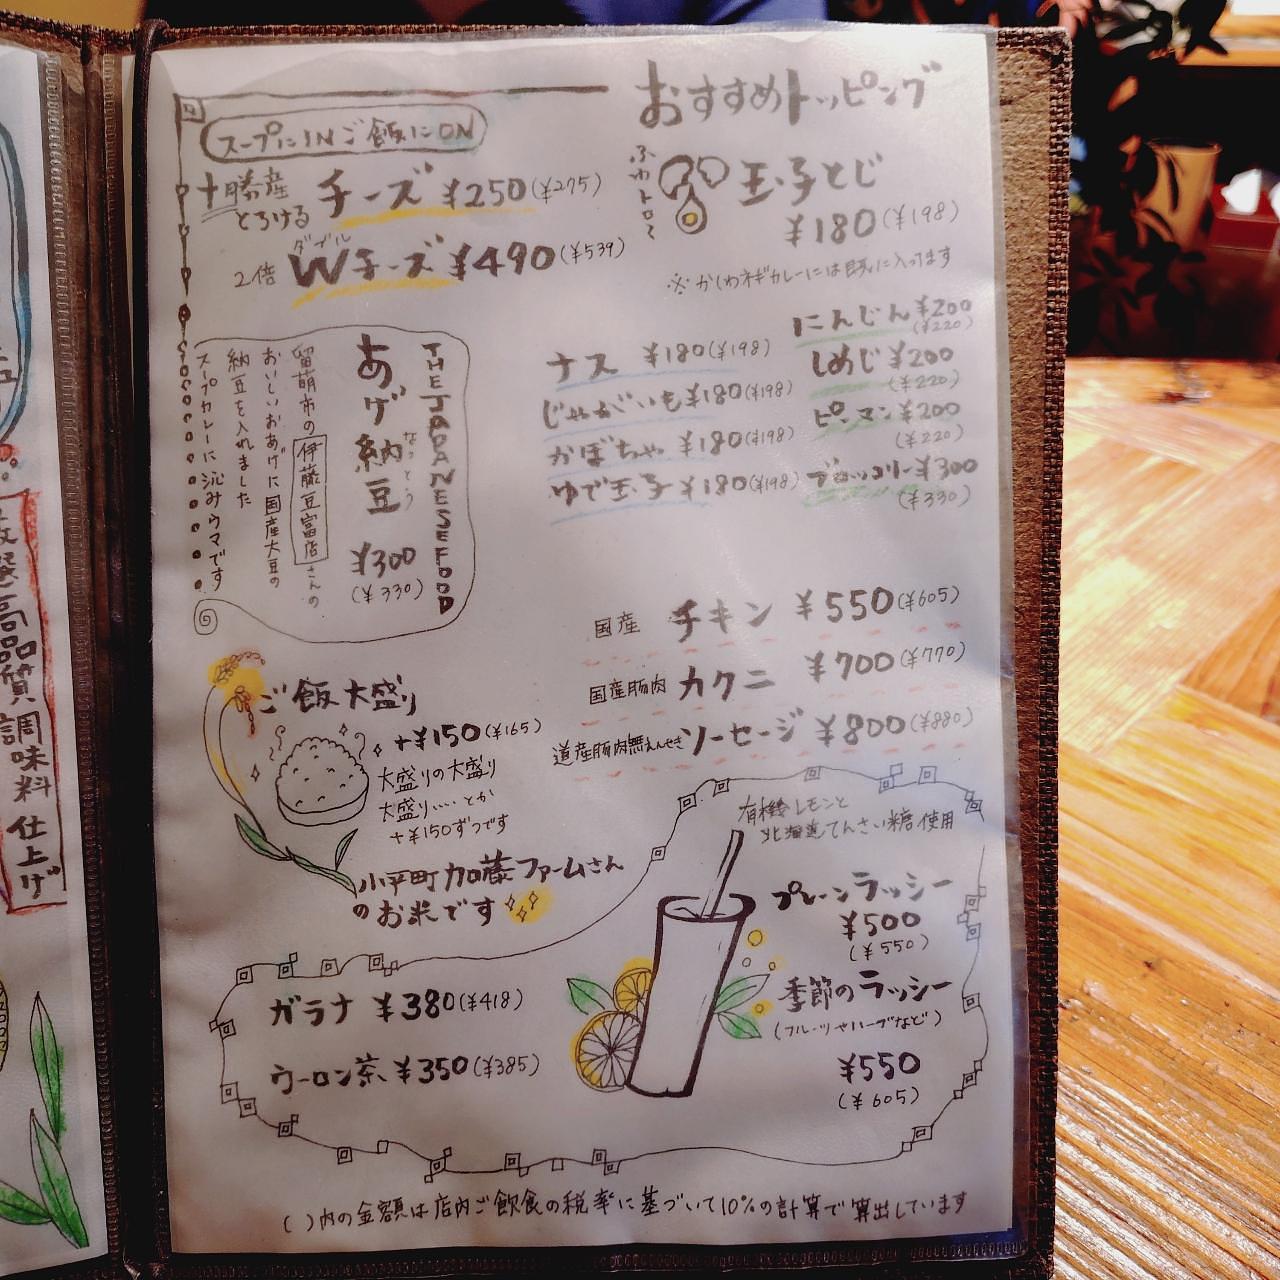 おすすめトッピング
スープにINご飯にON
十勝産
とろける
チーズ ¥250(¥275)
2倍 Wチーズ ¥490(¥539)
ダブル
ふわトロ〜
玉子とじ
¥180(¥198)
※かしわネギカレーには既に入ってます
THE JAPANESE FOOD
あげ納豆
なっとう
¥300
(¥330)
留萌市の伊藤豆富店さんの
おいしいおあげに国産大豆の
納豆を入れました
スープカレーに沁みウマです
ナス ¥180(¥198)
じゃがいも ¥180(¥198)
かぼちゃ ¥180(¥198)
ゆで玉子 ¥180(¥198)
にんじん ¥200
(¥220)
しめじ ¥200
(¥220)
ピーマン ¥200
(¥220)
ブロッコリー ¥300
(¥330)
国産 チキン ¥550(¥605)
国産豚肉 カクニ ¥700(¥770)
道産豚肉無えんせき ソーセージ ¥800(¥880)
ご飯大盛り
+¥150(¥165)
大盛りの大盛り
大盛り‥‥とか
+¥150ずつです
小平町加藤ファームさん
のお米です
有機レモンと
北海道てんさい糖使用
プレーンラッシー
¥500
(¥550)
季節のラッシー
(フルーツやハーブなど)
¥550
(¥605)
ガラナ ¥380(¥418)
ウーロン茶 ¥350(¥385)
( )内の金額は店内ご飲食の税率に基づいて10%の計算で算出しています
高品質調味料仕上げ